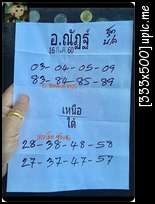 อ.ณัฏฐ์
16 ก.ค. 60
03-04-05-09
83-84-85-89
เหนือ
ใต้
28-38-48-58
27-37-47-57
[333x500] upic.me